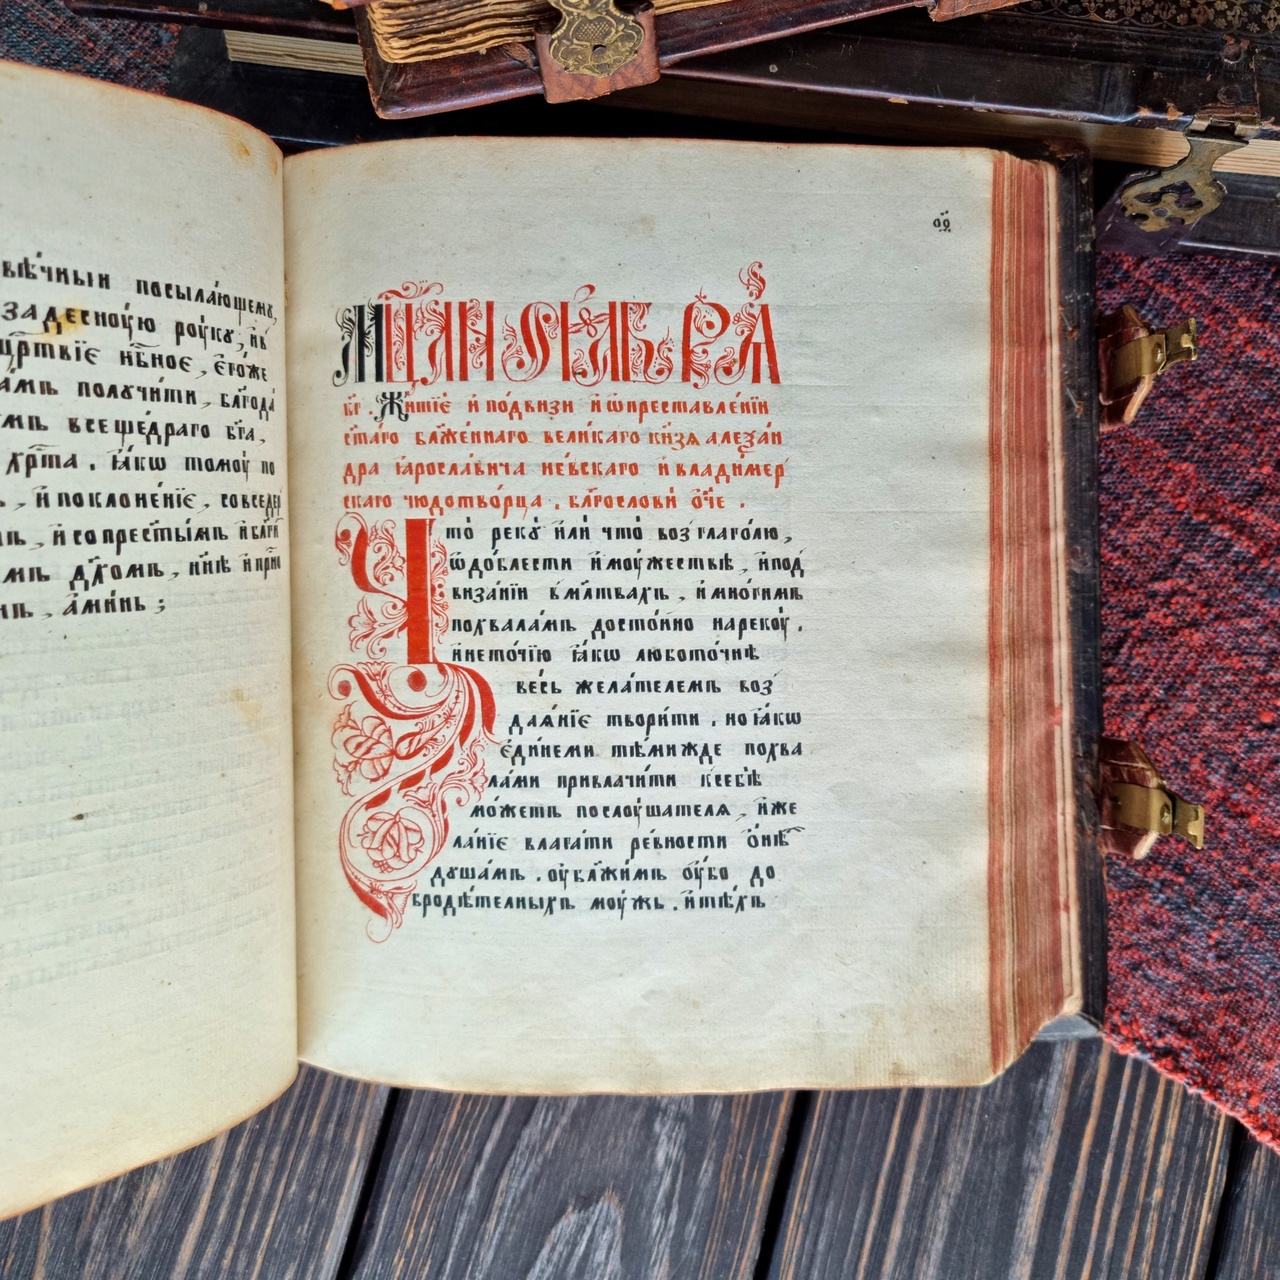 вѣ́чныи посыла́ющему,
за десну́ю ро́ку, нъ
црⷭ҇твїе нбⷭ҇ное, є҆го́же
а́мъ получи́ти, блгⷣода́
мъ всеще́драго бг҃а,
хрⷭ҇та̀. ꙗ҆́кѡ тому̀ по
ь, и҆ поклоне́нїе, со все де
мъ, и҆ со прест҃ы́мъ и҆ блг҃и
мъ дх҃омъ, ны́нѣ и҆ при́сно
нъ, а҆ми́нь;
о҃в
Мцⷭ҇а ноѧбрѧ
кг҃. Житїѐ и҆ по́двизи и҆ ѡ҆ преставле́нїи
ст҃а́го бл҃же́ннаго вели́каго кн҃зя алеѯа́н
дра ꙗ҆росла́вича не́вскаго и҆ влади́мер
скаго чюдотво́рца. бл҃гослови ѻ҆́ч҃е.
Что̀ реку̀ и҆лѝ что̀ возглаго́лю,
ѡ҆ до́блести и҆ мꙋ́жествѣ, и҆ под
виза́нїи в̾ мл҃твахъ, и҆ мно́гимъ
похвала́мъ досто́йно нарекꙋ̀.
и҆ не то́чїю ꙗ҆́кѡ любото́чнѣ
ве́сь жела́телемъ воз
дая́нїе твори́ти. но ꙗ҆́кѡ
є҆ди́неми тѣ́ми же похва
ла́ми привлачи́ти к себѣ̀
мо́жетъ послꙋ́шателя, и҆ же
ла́нїе влага́ти ре́вности ѻ҆́нѣ
душа́мъ. ᲂу҆блажи́мъ ᲂу҆́бо до
бродѣ́телныхъ мꙋ́жь. и҆ тѣ́хъ